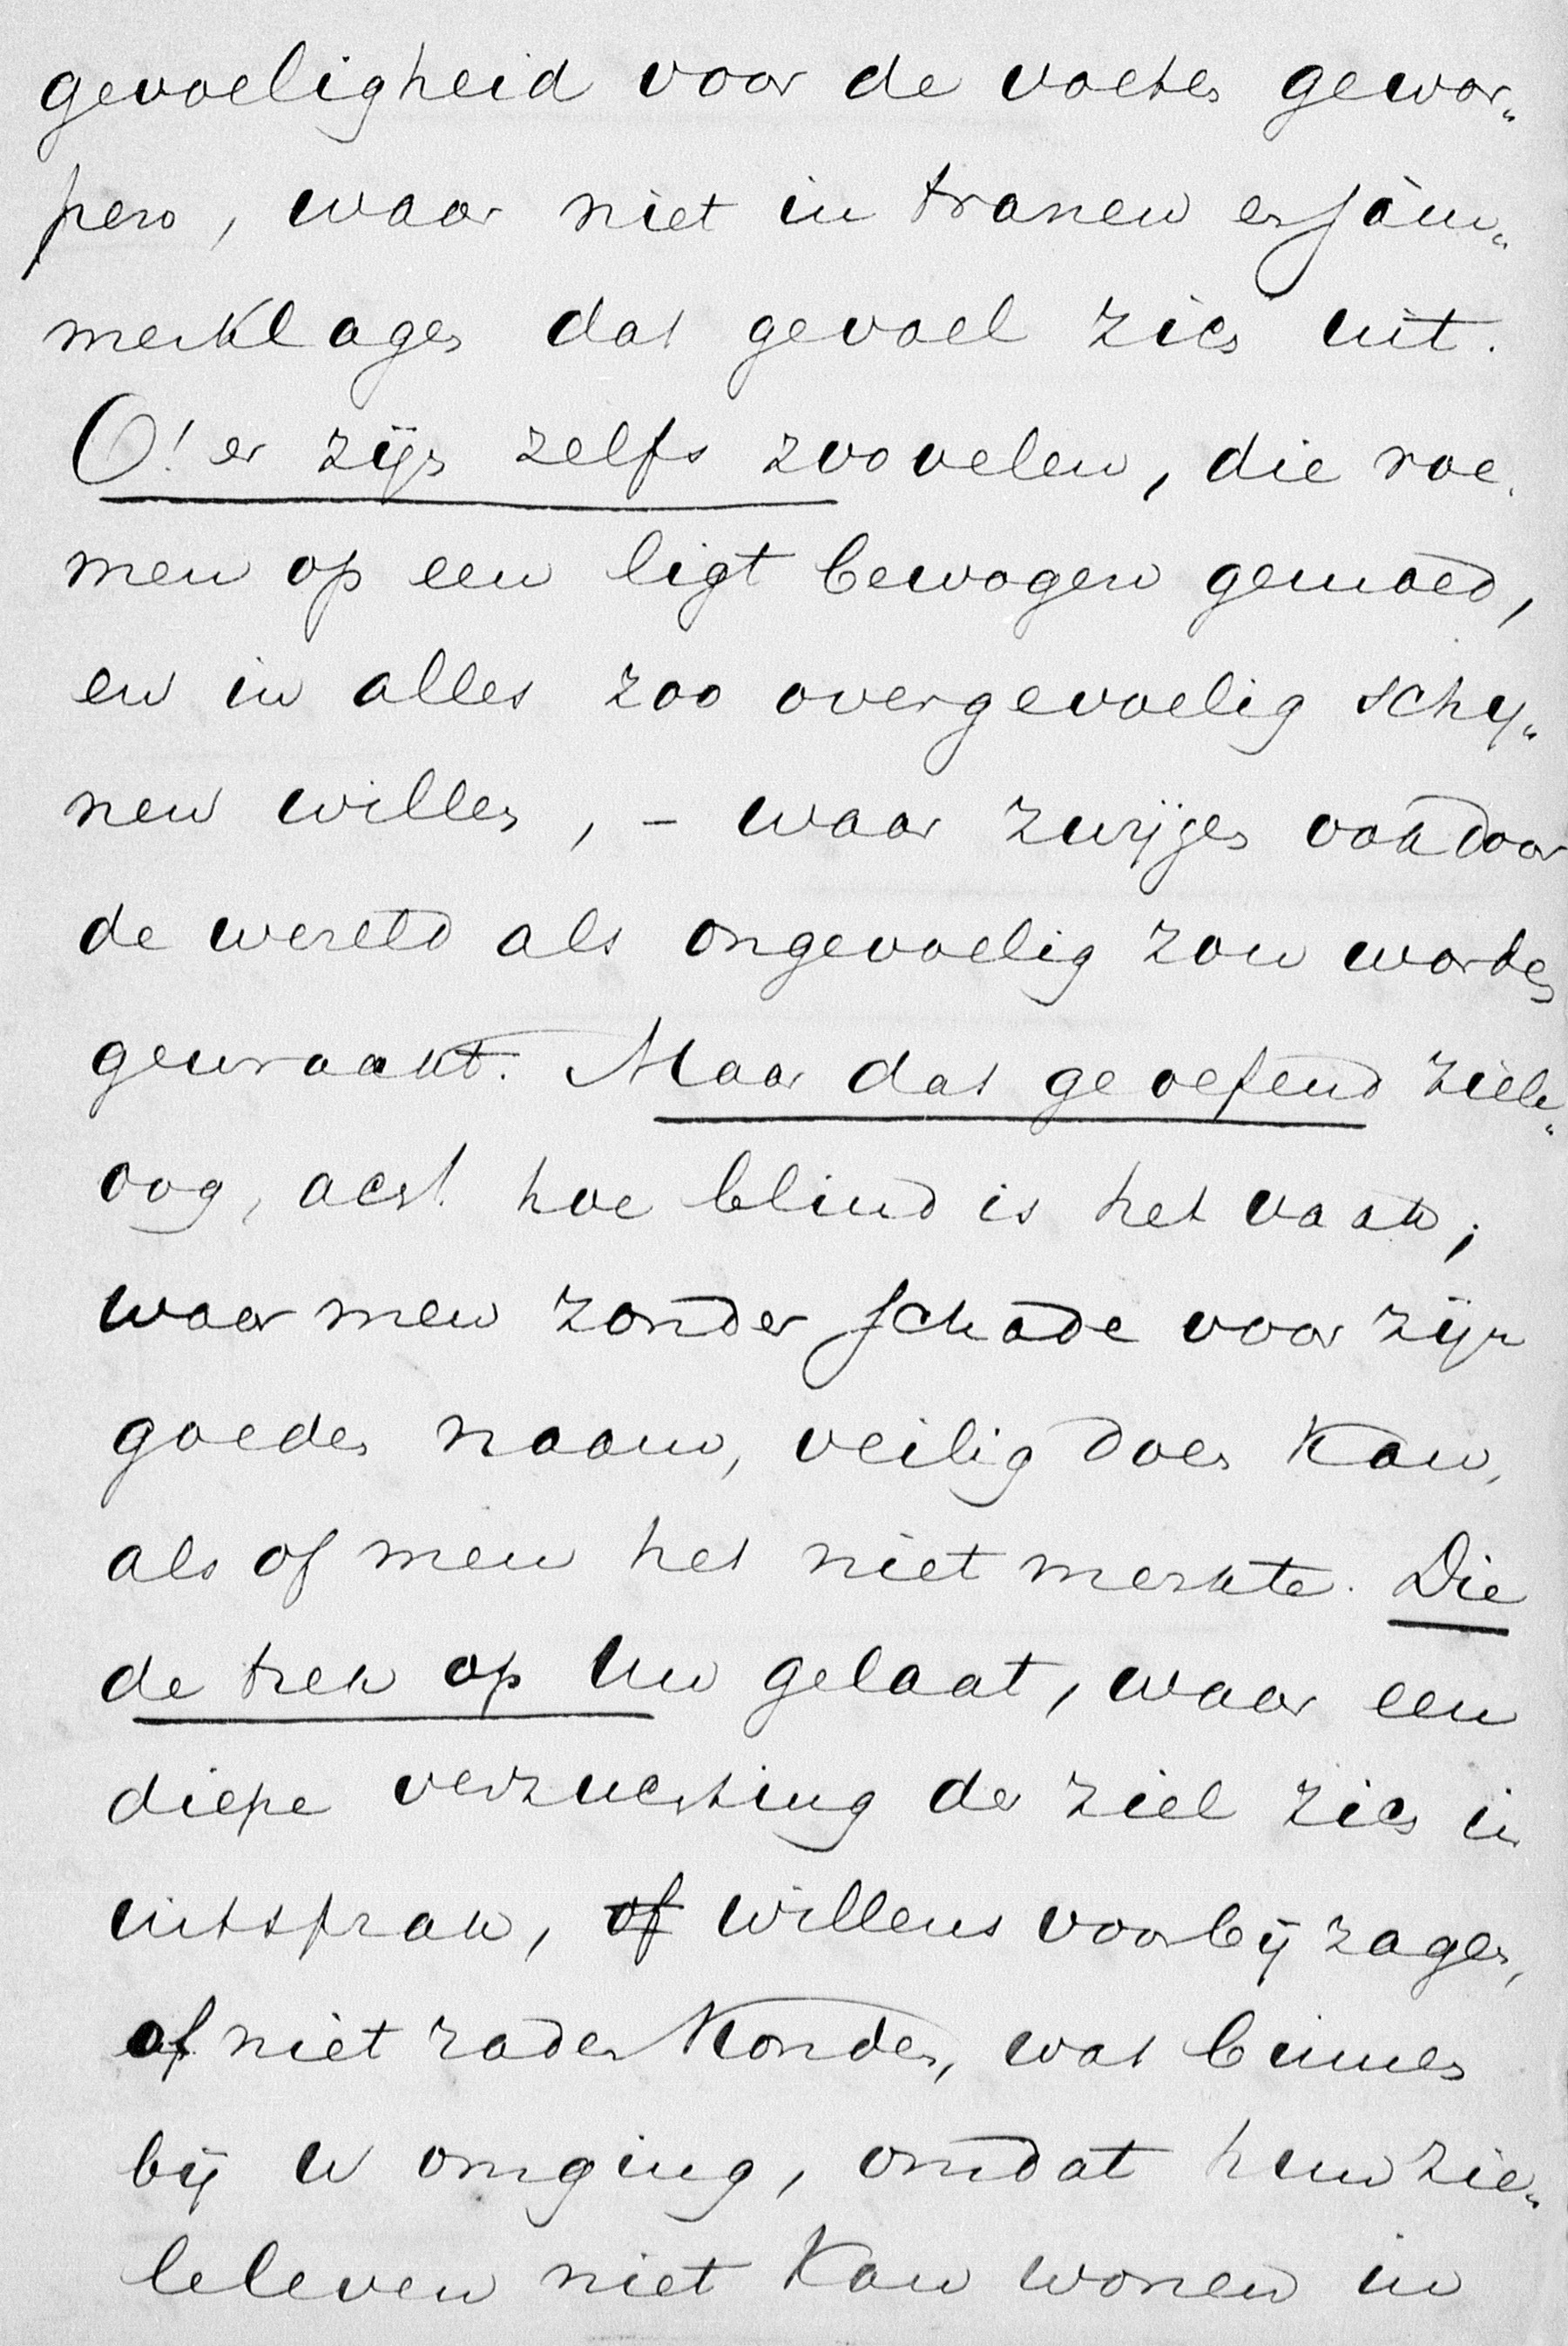 gevoeligheid voor de voeten gewor„
pen, waar niet in tranen en jam„
merklagen dat gevoel zich uit.
O! er zijn zelfs zoovelen, die roe„
men op een ligt bewogen gemoed,
en in alles zoo overgevoelig schy„
nen willen, – waar zwijgen ook door
de wereld als ongevoelig zou worden
gewraakt. Maar dat geoefend ziels„
oog, ach! hoe blind is het vaak,
waar men zonder schade voor zijn
goeden naam, veilig doen kan,
als of men het niet merkte. Die
de trek op Uw gelaat, waar een
diepe verzuchting der ziel zich in
uitsprak, of willens voorbij zagen,
of niet raden konden, wat binnen
bij U omging, omdat hun zie„
leleven niet kan wonen in